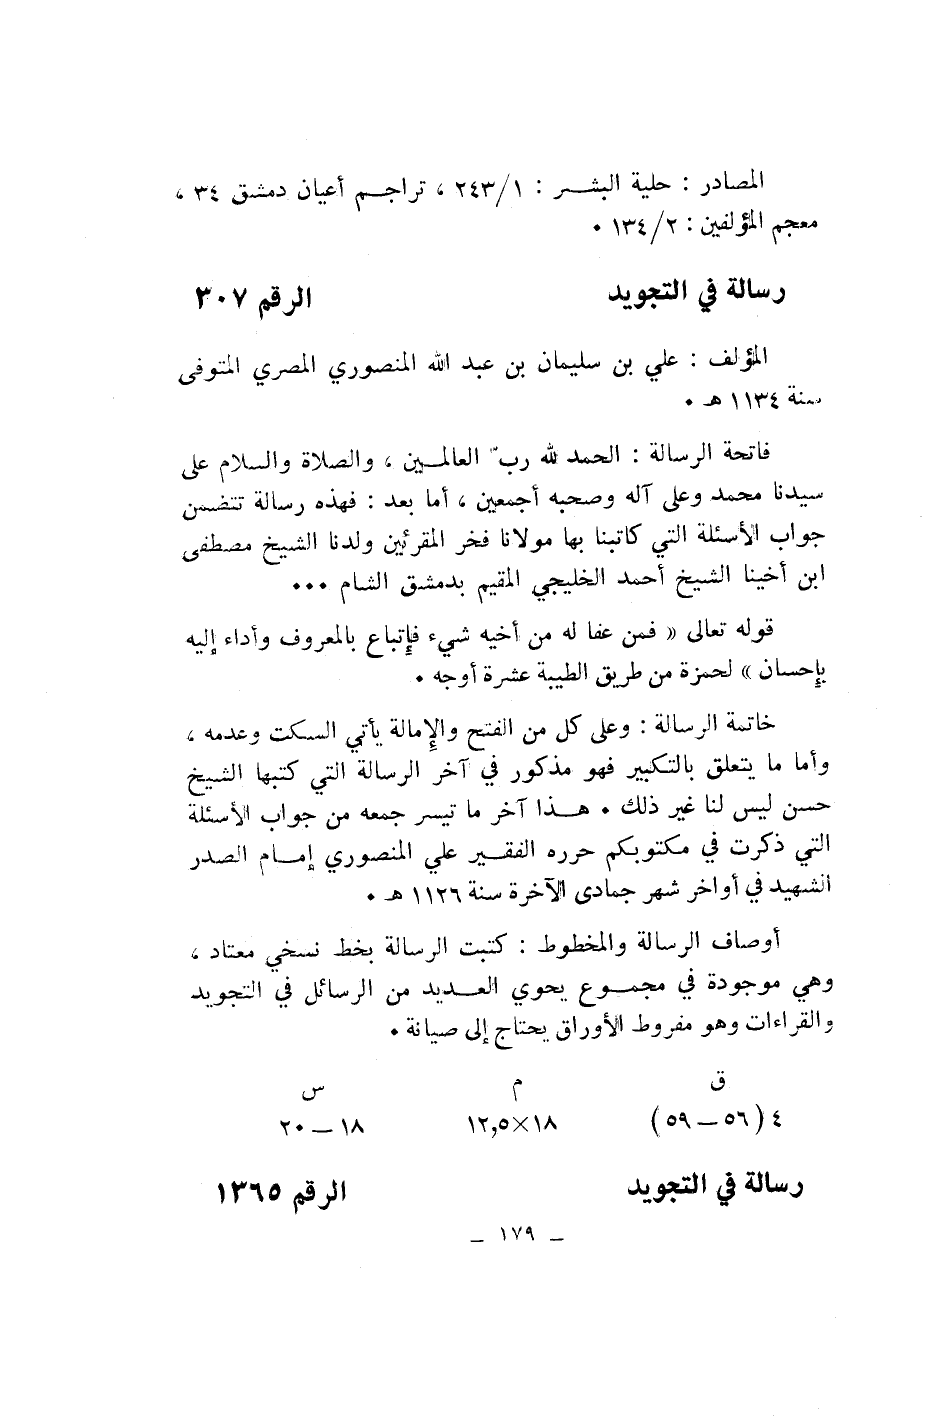 المصادر : حلية البشـــر : ٢٤٣/١ ، تراجــم أعيان دمشق ٣٤ ،
معجم المؤلفين : ١٣٤/٢ .
رسالة في التجويد الرقم ٣٠٧
المؤلف : علي بن سليمان بن عبد الله المنصوري المصري المتوفى
سنة ١١٣٤ هـ .
فاتحة الرسالة : الحمد لله ربّ العالمــين ، والصلاة والسلام على
سيدنا محمد وعلى آله وصحبه أجمعين ، أما بعد : فهذه رسالة تتضمن
جواب الأسئلة التي كاتبنا بها مولانا فخر المقرئين ولدنا الشيخ مصطفى
ابن أخينا الشيخ أحمد الخليجي المقيم بدمشق الشام ...
قوله تعالى « فمن عفا له من أخيه شيء فإتباع بالمعروف وأداء إليه
بإحسان » لحمزة من طريق الطيبة عشرة أوجه .
خاتمة الرسالة : وعلى كل من الفتح والإمالة يأتي السكت وعدمه ،
وأما ما يتعلق بالتكبير فهو مذكور في آخر الرسالة التي كتبها الشيخ
حسن ليس لنا غير ذلك . هــذا آخر ما تيسر جمعه من جواب الأسئلة
التي ذكرت في مكتوبكم حرره الفقــير علي المنصوري إمــام الصدر
الشهيد في أواخر شهر جمادى الآخرة سنة ١١٢٦ هـ .
أوصاف الرسالة والمخطوط : كتبت الرسالة بخط نسخي معتاد ،
وهي موجودة في مجمــوع يحوي العــديد من الرسائل في التجويد
والقراءات وهو مفروط الأوراق يحتاج إلى صيانة .
ق م س
٤ (٥٦ – ٥٩) ١٨×١٢,٥ ١٨ – ٢٠
رسالة في التجويد الرقم ١٣٦٥
– ١٧٩ –